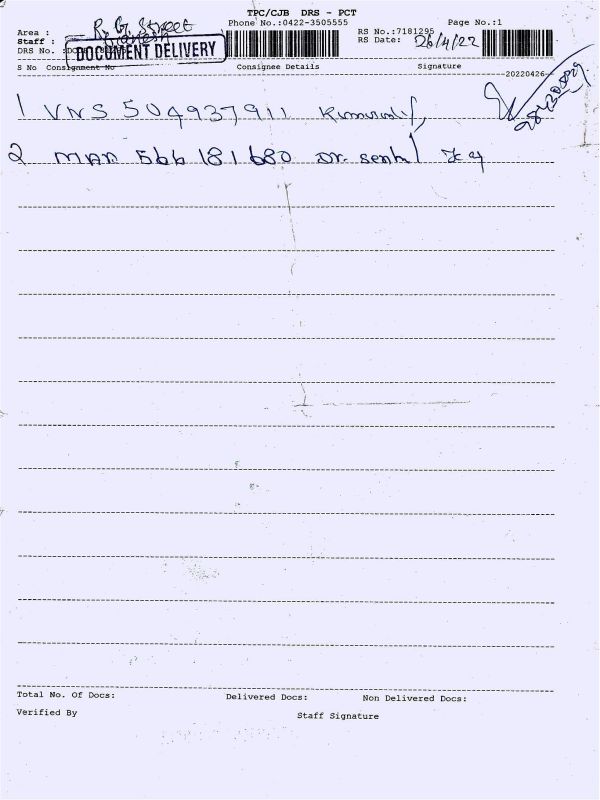 TPC/CJB DRS - PCT
Phone No.:0422-3505555
Page No.:1
Area : R. G. Street
RS No.:7181295
Staff :
RS Date: 26/4/22
DRS No. :
DOCUMENT DELIVERY
S No Consignment No Consignee Details Signature
20220426
1 VNS 504937911
2 MAA 566 181 680 Dr. Senthil
Total No. Of Docs: Delivered Docs: Non Delivered Docs:
Verified By Staff Signature